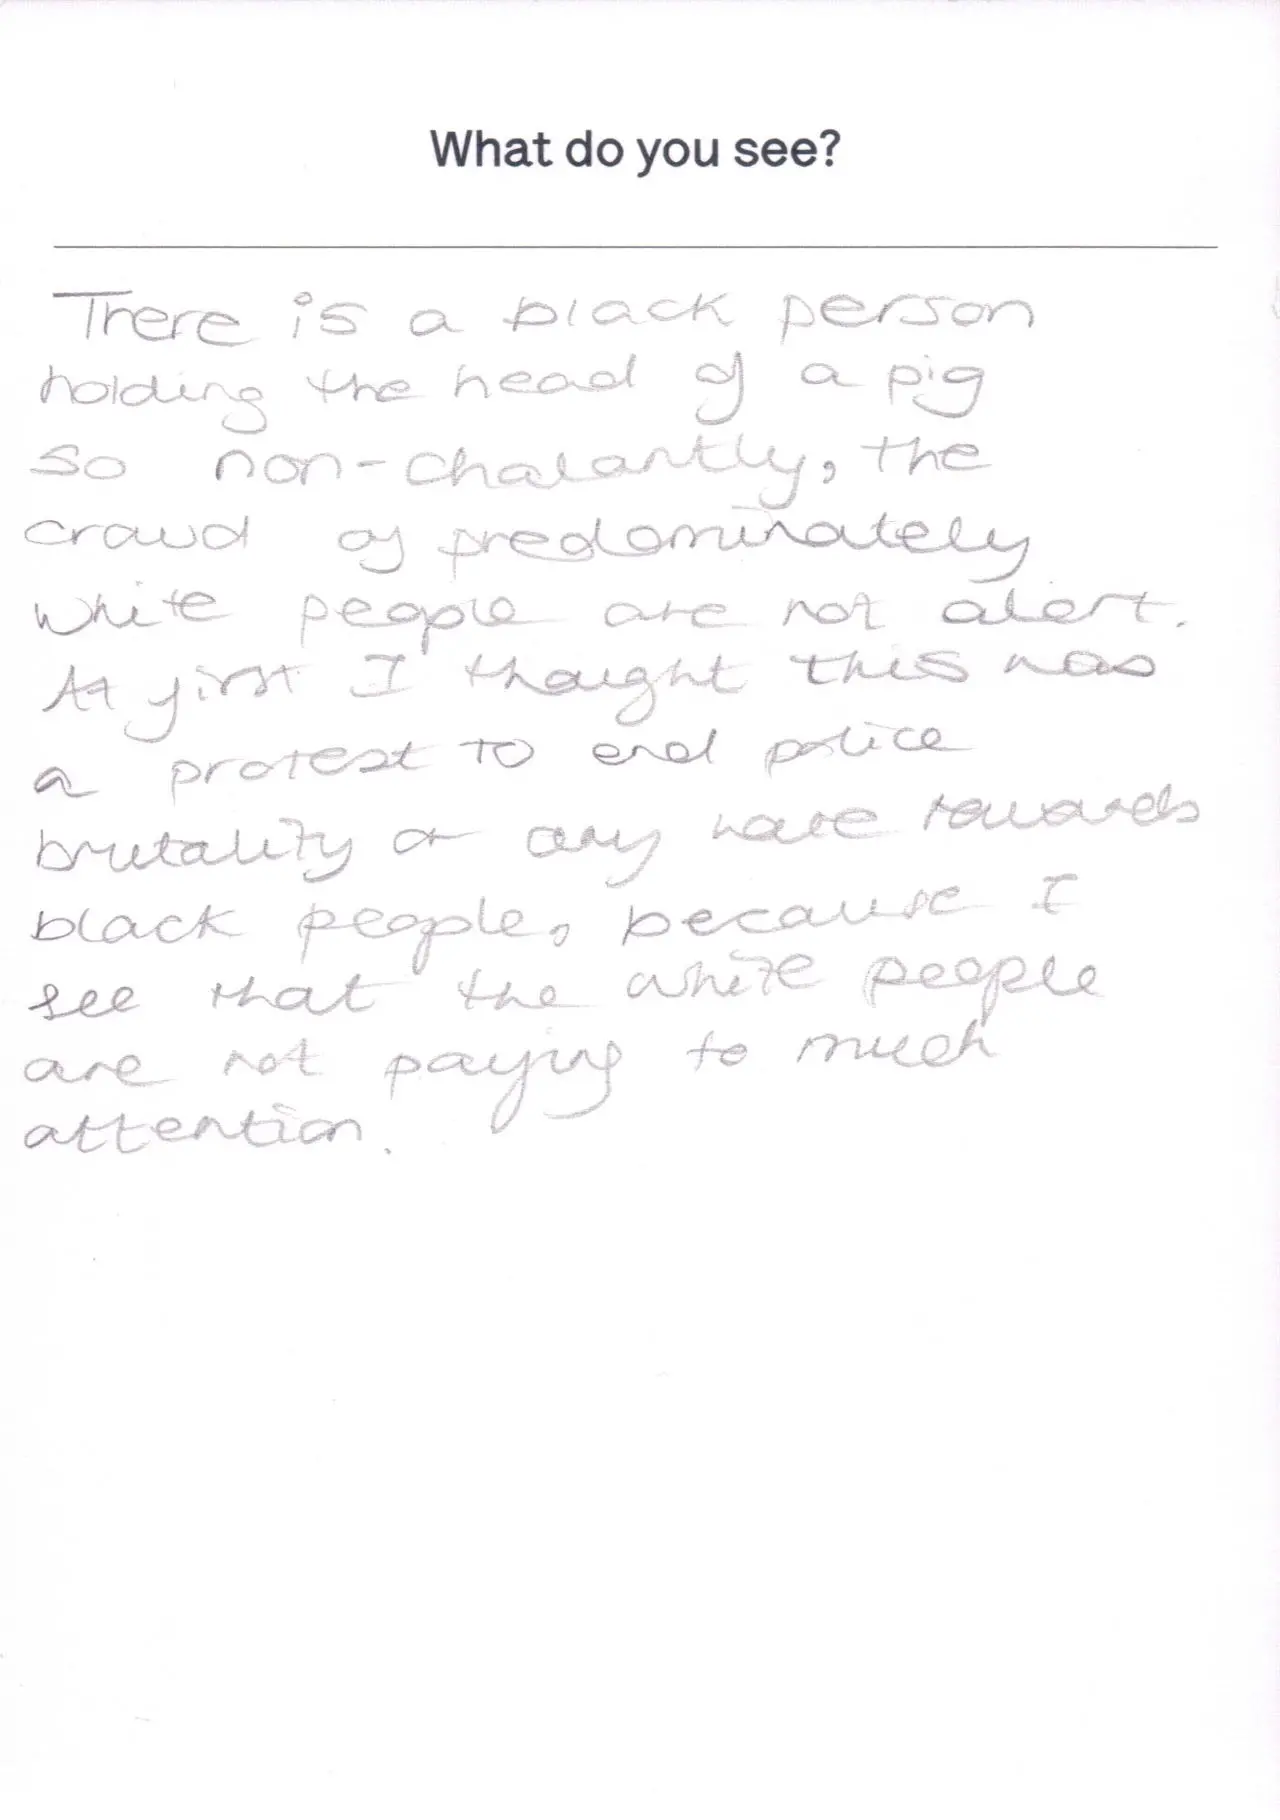 What do you see?
There is a black person
holding the head of a pig
so non-chalantly, the
crowd of predominately
white people are not alert.
At first I thought this was
a protest to end police
brutality or any hate towards
black people, because I
see that the white people
are not paying to much
attention.